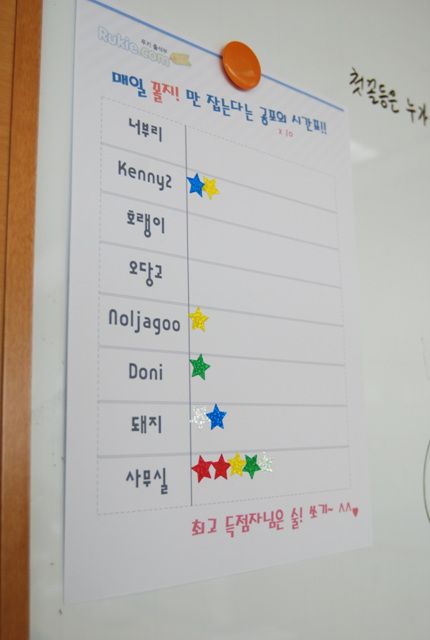 루키 출석부
Rukie.com
매일 꼴지! 만 잡는다는 공포의 시간표!!
x 10
너부리
Kenny2
호랭이
오당고
Noljagoo
Doni
돼지
사무실
최고 득점자님은 술! 쏘기~ ^^♥
첫꼴등은 누가